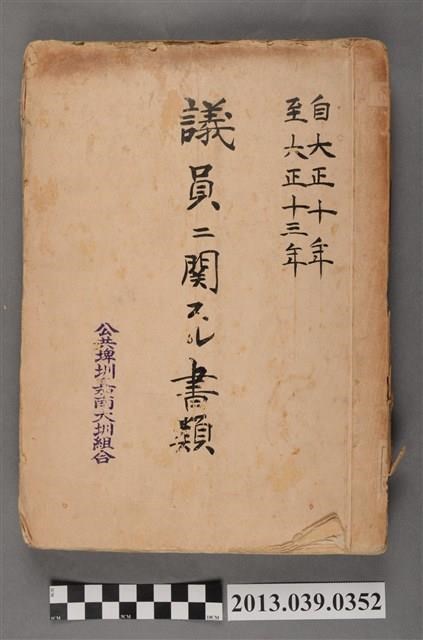 自大正十年
至大正十三年
議員ニ関スル書類
公共埤圳嘉南大圳組合
2013.039.0352